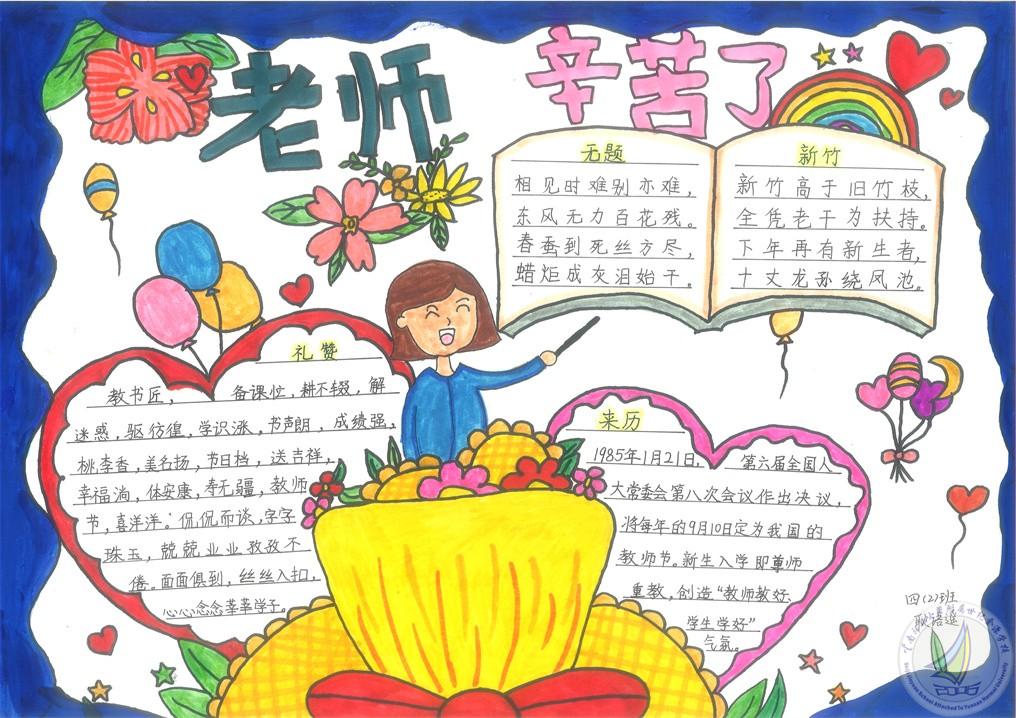 老师 辛苦了
无题
相见时难别亦难,
东风无力百花残。
春蚕到死丝方尽,
蜡炬成灰泪始干。
新竹
新竹高于旧竹枝,
全凭老干为扶持。
下年再有新生者,
十丈龙孙绕凤池。
礼赞
教书匠, 备课忙,耕不辍,解
迷惑,驱彷徨,学识涨,书声朗,成绩强,
桃李香,美名扬,节日档,送吉祥,
幸福淌,体安康,寿无疆,教师
节,喜洋洋。侃侃而谈,字字
珠玉,兢兢业业孜孜不
倦。面面俱到,丝丝入扣,
心心念念莘莘学子。
来历
1985年1月21日, 第六届全国人
大常委会第八次会议作出决议,
将每年的9月10日定为我国的
教师节。新生入学即尊师
重教,创造“教师教好、
学生学好”
气氛。
四(2)班